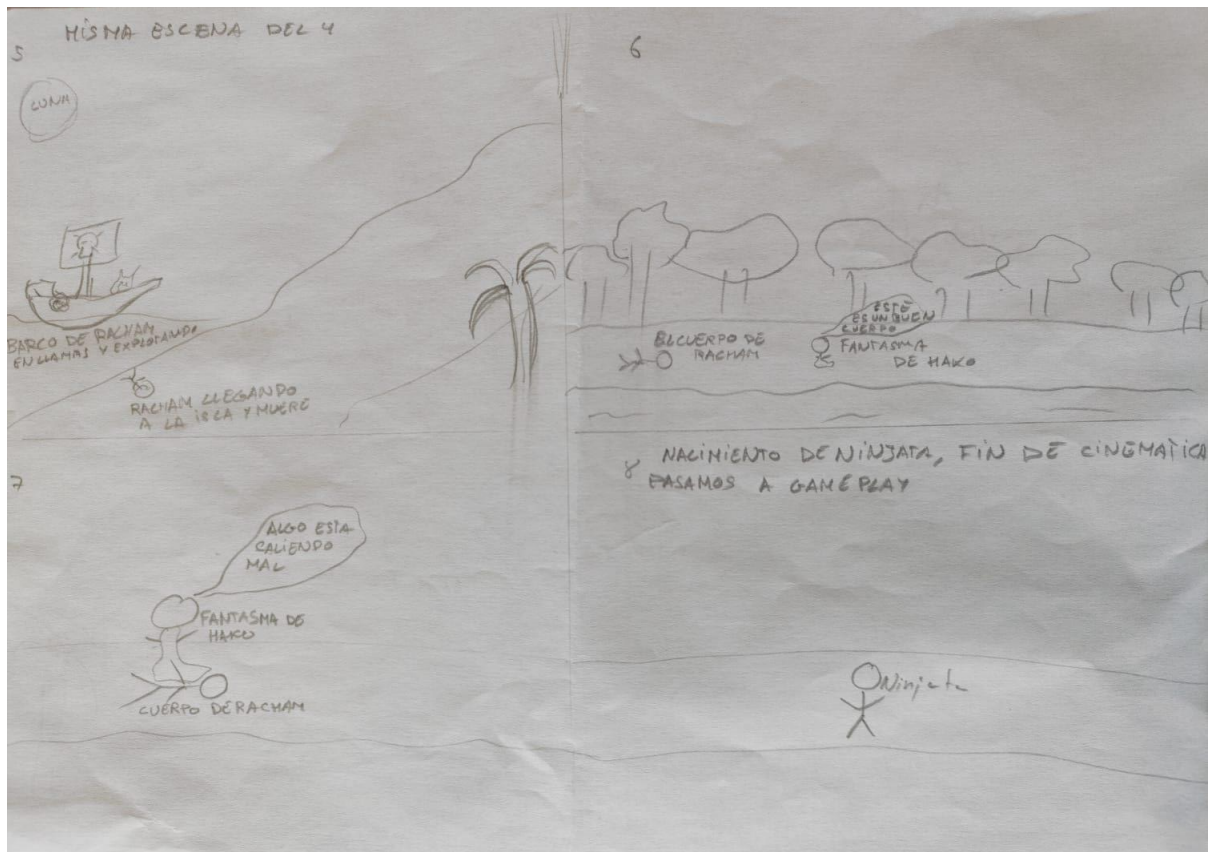 5
MISMA ESCENA DEL 4
LUNA
BARCO DE RACHAM
EN LLAMAS Y EXPLOTANDO
RACHAM LLEGANDO
A LA ISLA Y MUERE
6
ESTE
ES UN BUEN
CUERPO
EL CUERPO DE
RACHAM
FANTASMA
DE HAKO
7
ALGO ESTA
CALIENDO
MAL
FANTASMA DE
HAKO
CUERPO DE RACHAM
8
NACIMIENTO DE NINJATA, FIN DE CINEMATICA
PASAMOS A GAMEPLAY
Ninjata